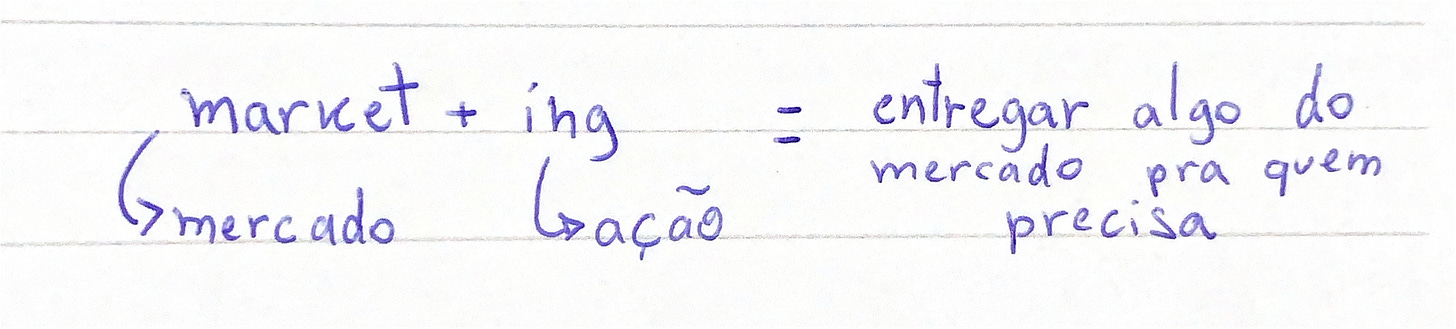 market + ing = entregar algo do
mercado pra quem
↳mercado ↳ação precisa